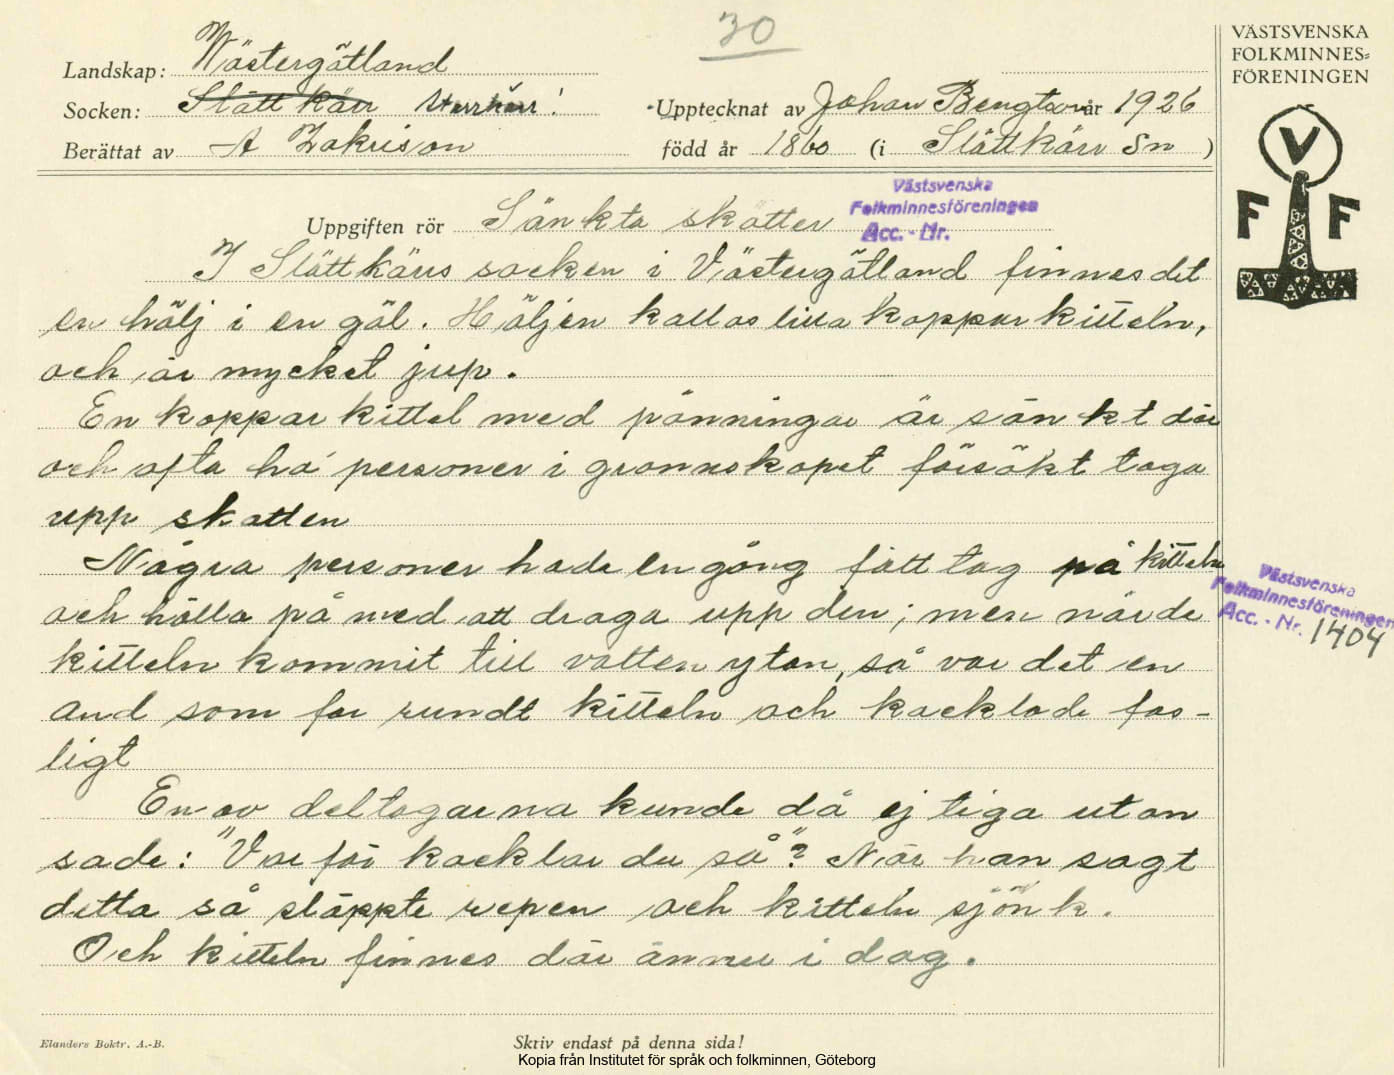 30
VÄSTSVENSKA
FOLKMINNES=
FÖRENINGEN
Landskap: Västergötland
Socken: Slättkärr Starrkärr!
Upptecknat av Johan Bengtson år 1926
Berättat av A Zakrison
född år 1860 (i Slättkärr Sn )
V
F F
Västsvenska
Folkminnesföreningen
Acc. - Nr.
Uppgiften rör Sänkta skatter
I Slättkärrs socken i Västergötland finnes det
en hölj i en göl. Höljen kallas lilla kopparkitteln,
och är mycket jup.
En kopparkittel med pänningar är sänkt där
och ofta ha personer i grannskapet försökt taga
upp skatten
Några personer hade en gång fått tag på kitteln
och hålla på med att draga upp den; men när de
kitteln kommit till vattenytan, så var det en
and som for rundt kitteln och kacklade fas-
ligt
En av deltagarna kunde då ej tiga utan
sade: "Var för kacklar du så"? När han sagt
detta så släppte repen och kitteln sjönk.
Och kitteln finnes där ännu i dag.
Västsvenska
Folkminnesföreningen
Acc. - Nr. 1404
Elanders Boktr. A.-B.
Skriv endast på denna sida!
Kopia från Institutet för språk och folkminnen, Göteborg